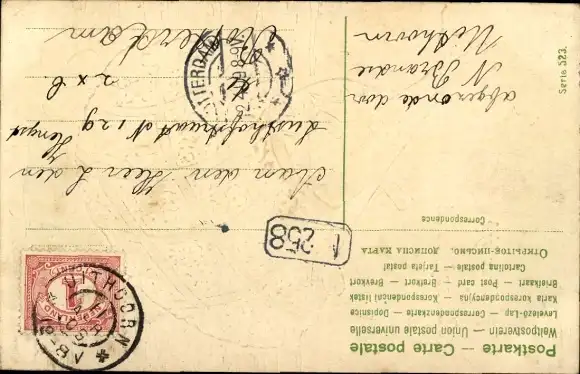 Postkarte — Carte postale
Weltpostverein — Union postale universelle
Levelező-Lap — Correspondenzkarte — Dopisnice
Karta korespondencyjna — Korespondenční lístek
Briefkaart — Post card — Brefkort — Brevkort
Cartolina postale — Tarjeta postal
ОТКРЫТОЕ-ПИСЬМО. ДОПИСНА КАРТА
Correspondence
afzender door
N Brandse
Uithoorn
Serie 523.
Aan den Heer L den
Hengst
N 129
2 x b
Rotterdam
1258
UITHOORN